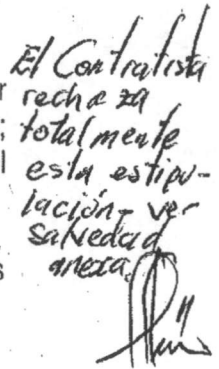 El Contratista
rechaza
totalmente
esta estipu-
lación, ver
salvedad
anexa.